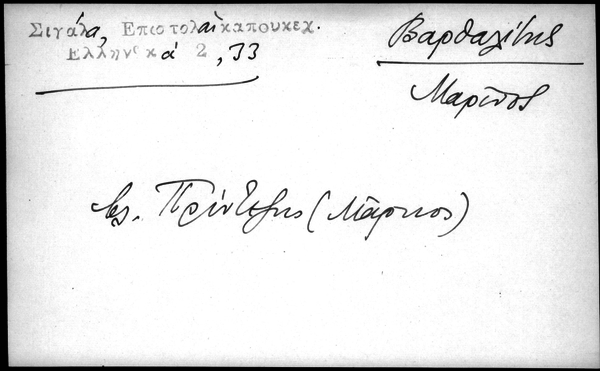 Σιγάλα, Επιστολαίκαπουκεχ.
Ελληνικά 2, 33
Βαρθαλίτης
Μαρῖνος
βλ. Πρίντεζης (Μάρκος)